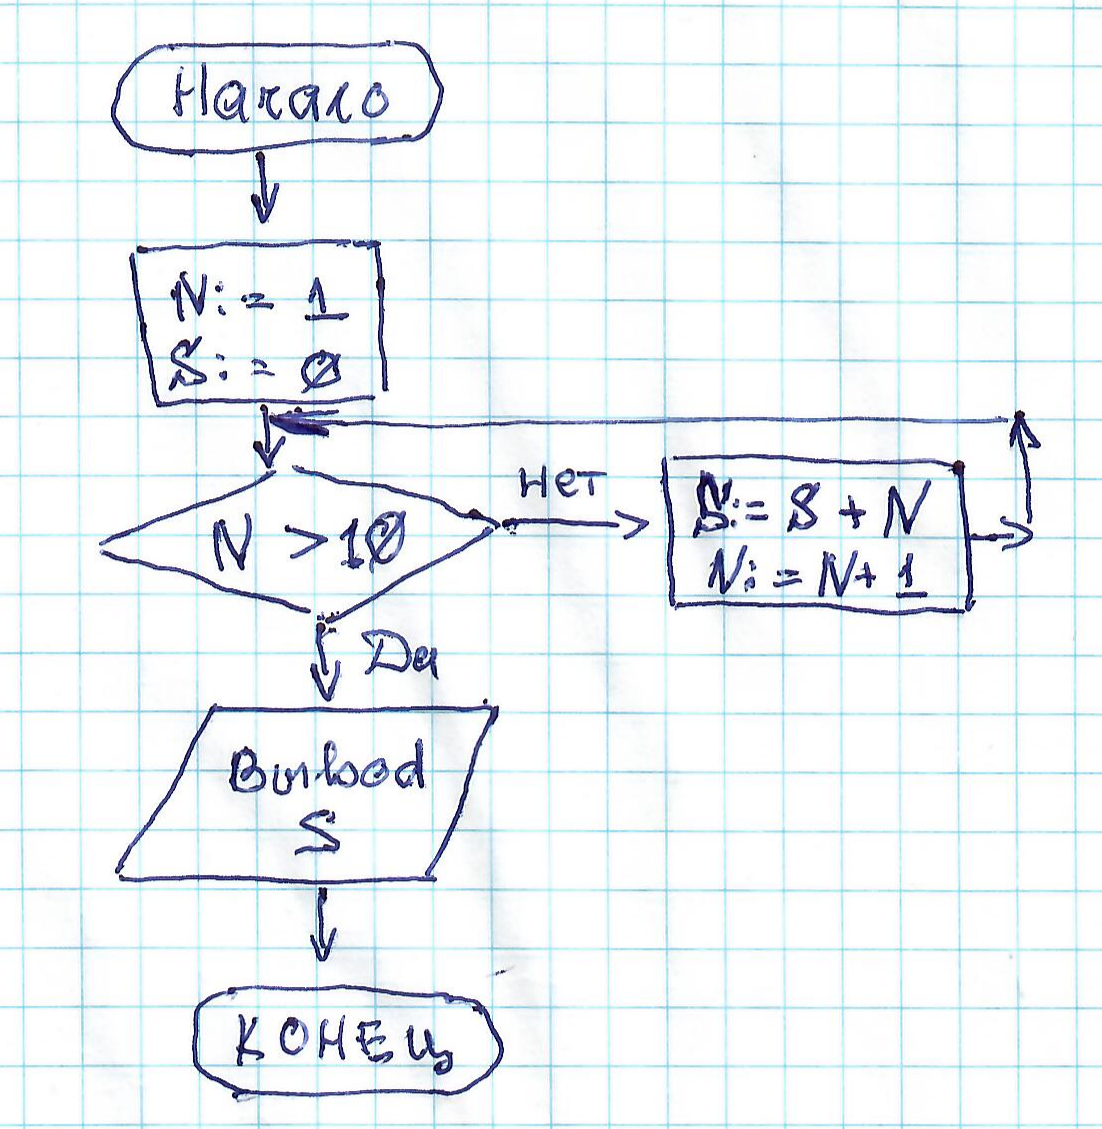 Начало
N:= 1
S:= 0
N > 10
Нет
S:= S + N
N:= N+ 1
Да
Вывод
S
КОНЕЦ